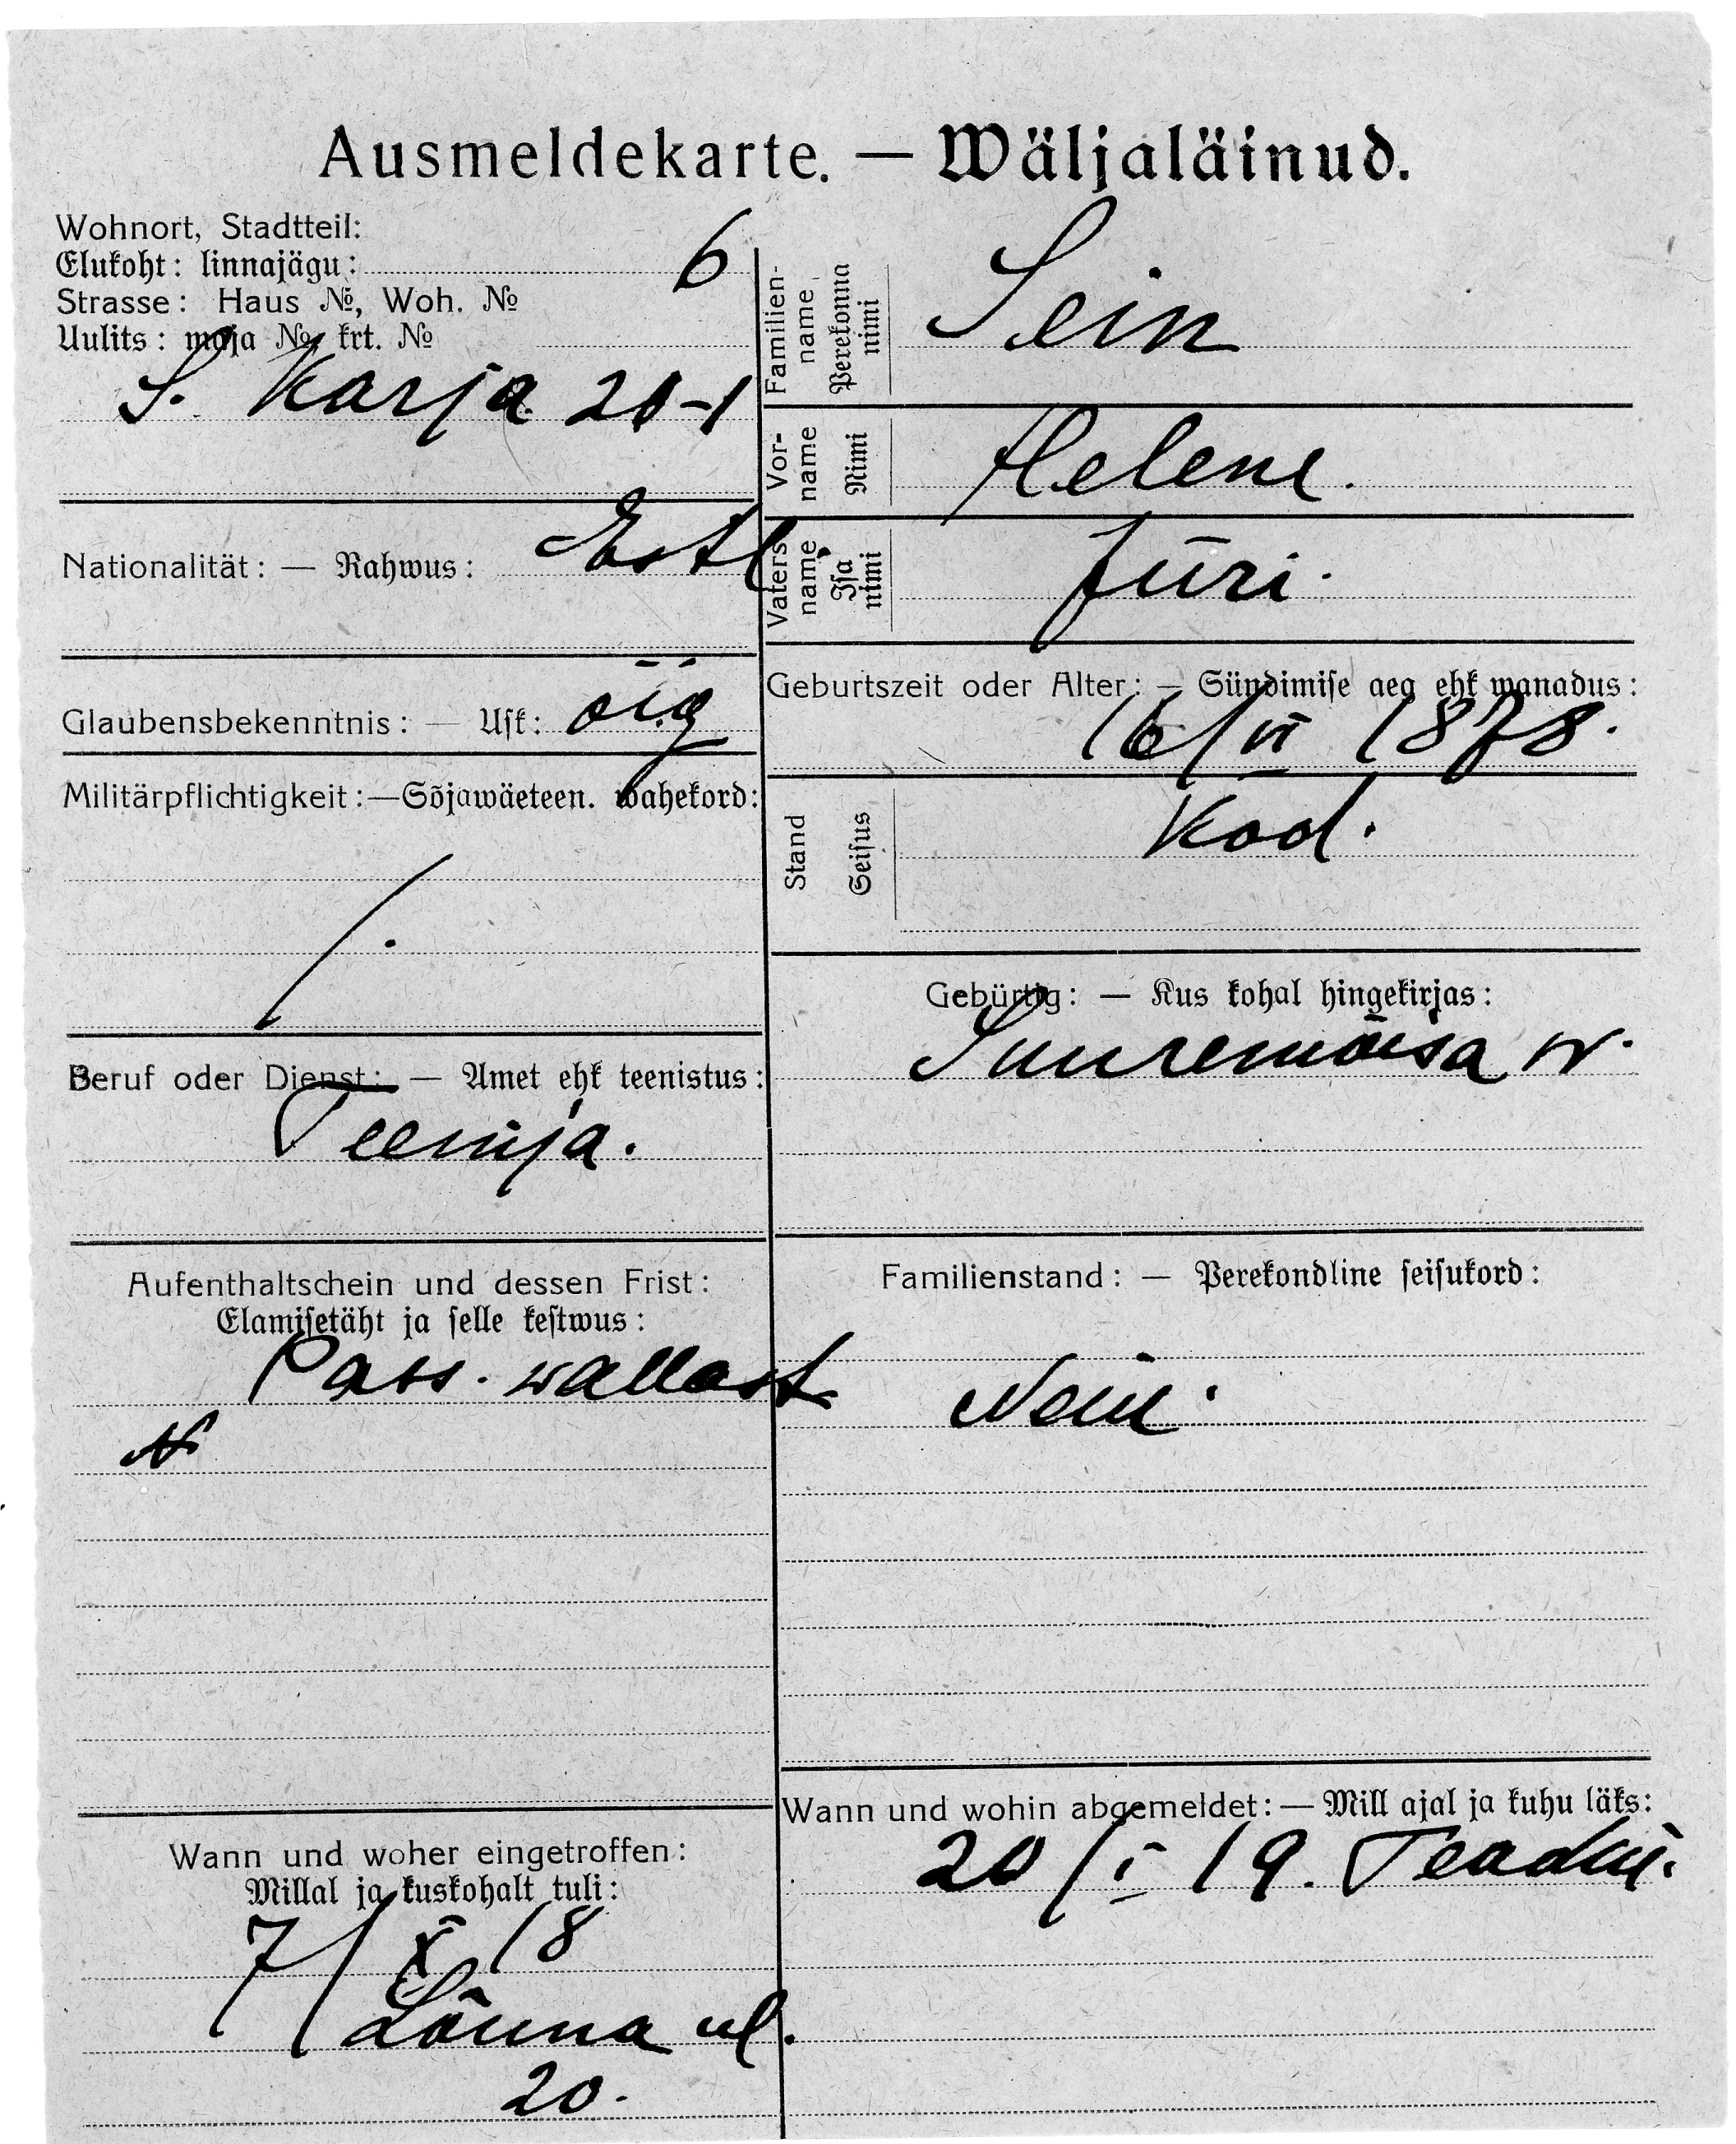 Ausmeldekarte. — Wäljaläinud.
Wohnort, Stadtteil:
Elukoht: linnajägu: 6
Strasse: Haus №, Woh. №
Uulits: maja № krt. №
S. Karja 20-1
Nationalität: — Rahwus: Estl
Glaubensbekenntnis: — Usk: õig
Militärpflichtigkeit:—Sõjawäeteen. wahekord:
/.
Beruf oder Dienst: — Amet ehk teenistus:
Teenija.
Aufenthaltschein und dessen Frist:
Elamisetäht ja selle kestwus:
Pass. wallast
№
Wann und woher eingetroffen:
Millal ja kuskohalt tuli:
7/X 18
Lõuna ul.
20.
Familien-
name
Perekonna
nimi
Sein
Vor-
name
Nimi
Helene.
Vaters
name
Isa
nimi
Jüri.
Geburtszeit oder Alter: — Sündimise aeg ehk wanadus:
16/VI 1878.
Stand
Seisus
Kod.
Gebürtig: — Kus kohal hingekirjas:
Suuremõisa w.
Familienstand: — Perekondline seisukord:
Neiu.
Wann und wohin abgemeldet:—Mill ajal ja kuhu läks:
20/I 19.